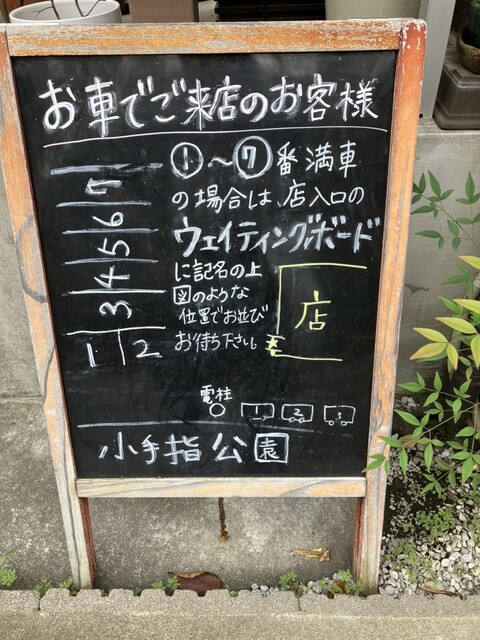 お車でご来店のお客様
①～⑦番満車
の場合は、店入口の
ウェイティングボード
に記名の上
図のような
位置でお並び
お待ち下さい。
7
6
5
4
3
1 2
店
電柱
1 2 3
小手指公園